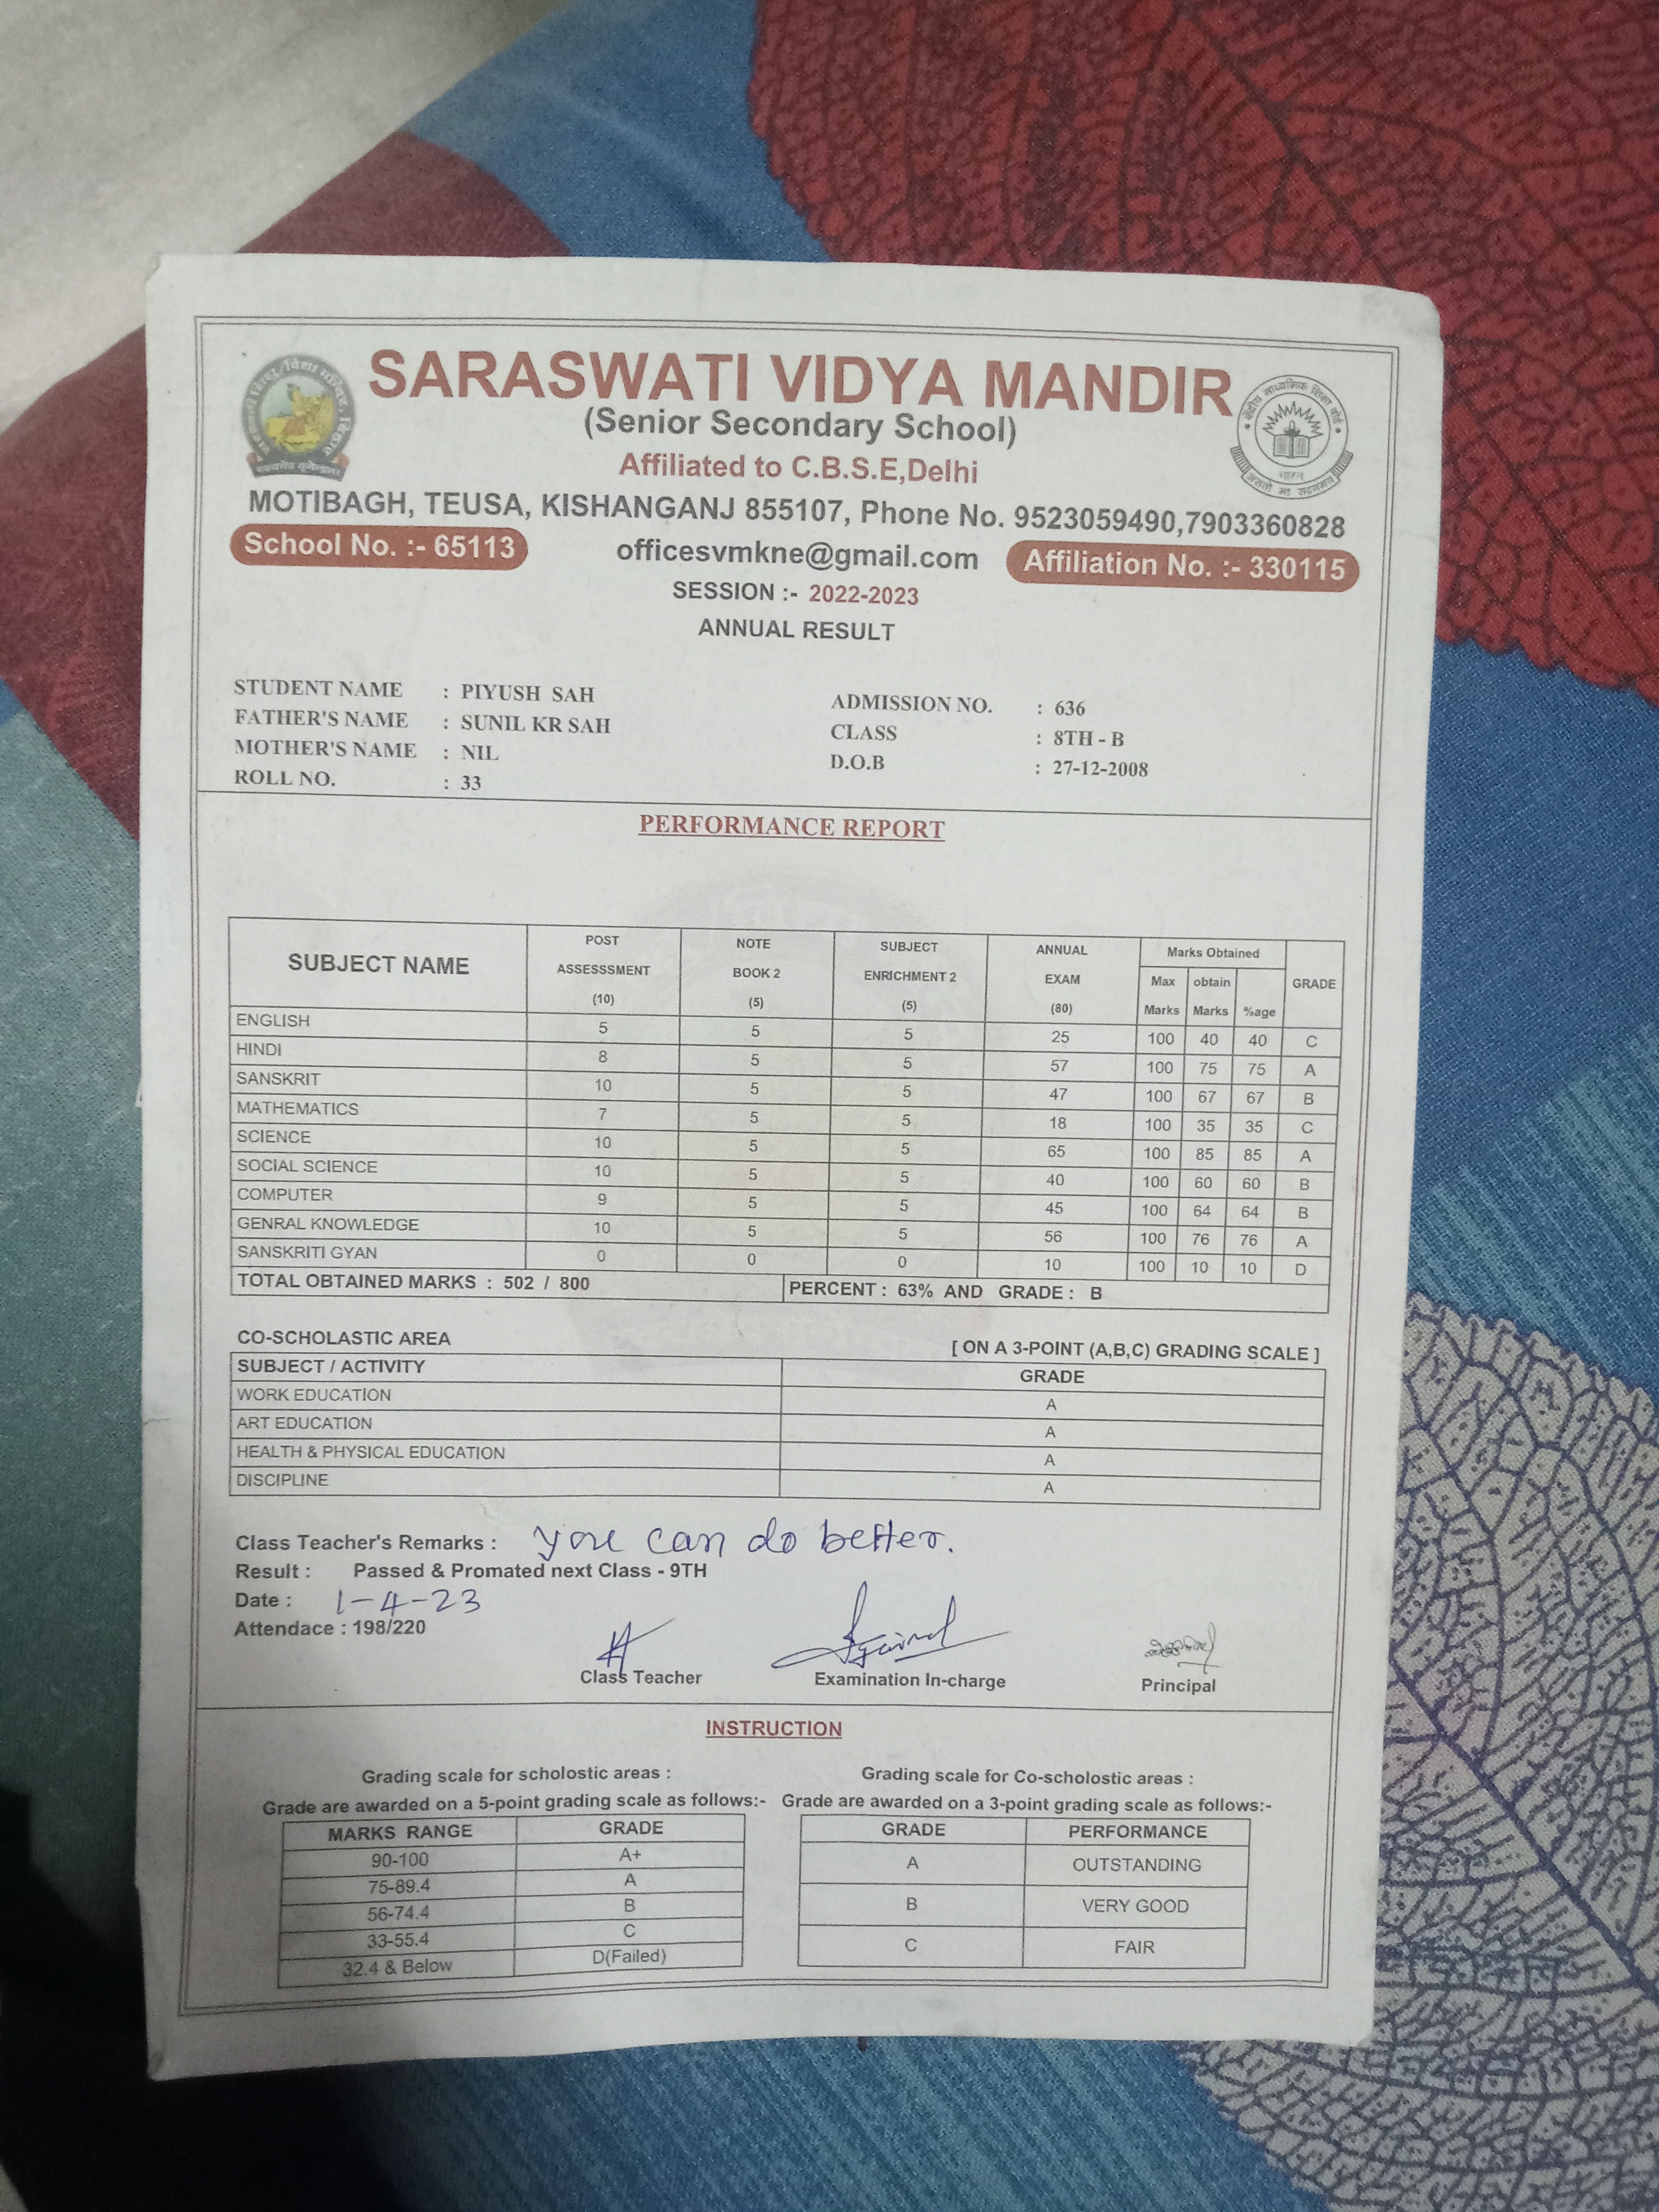 SARASWATI VIDYA MANDIR
(Senior Secondary School)
Affiliated to C.B.S.E,Delhi
MOTIBAGH, TEUSA, KISHANGANJ 855107, Phone No. 9523059490,7903360828
School No. :- 65113 officesvmkne@gmail.com Affiliation No. :- 330115
SESSION :- 2022-2023
ANNUAL RESULT
STUDENT NAME : PIYUSH SAH ADMISSION NO. : 636
FATHER'S NAME : SUNIL KR SAH CLASS : 8TH - B
MOTHER'S NAME : NIL D.O.B : 27-12-2008
ROLL NO. : 33
PERFORMANCE REPORT
SUBJECT NAME POST ASSESSSMENT (10) NOTE BOOK 2 (5) SUBJECT ENRICHMENT 2 (5) ANNUAL EXAM (80) Marks Obtained Max Marks obtain Marks %age GRADE
ENGLISH 5 5 5 25 100 40 40 C
HINDI 8 5 5 57 100 75 75 A
SANSKRIT 10 5 5 47 100 67 67 B
MATHEMATICS 7 5 5 18 100 35 35 C
SCIENCE 10 5 5 65 100 85 85 A
SOCIAL SCIENCE 10 5 5 40 100 60 60 B
COMPUTER 9 5 5 45 100 64 64 B
GENRAL KNOWLEDGE 10 5 5 56 100 76 76 A
SANSKRITI GYAN 0 0 0 10 100 10 10 D
TOTAL OBTAINED MARKS : 502 / 800 PERCENT : 63% AND GRADE : B
CO-SCHOLASTIC AREA [ ON A 3-POINT (A,B,C) GRADING SCALE ]
SUBJECT / ACTIVITY GRADE
WORK EDUCATION A
ART EDUCATION A
HEALTH & PHYSICAL EDUCATION A
DISCIPLINE A
Class Teacher's Remarks : You can do better.
Result : Passed & Promated next Class - 9TH
Date : 1-4-23
Attendace : 198/220
Class Teacher Examination In-charge Principal
INSTRUCTION
Grading scale for scholostic areas : Grading scale for Co-scholostic areas :
Grade are awarded on a 5-point grading scale as follows:- Grade are awarded on a 3-point grading scale as follows:-
MARKS RANGE GRADE GRADE PERFORMANCE
90-100 A+ A OUTSTANDING
75-89.4 A
56-74.4 B B VERY GOOD
33-55.4 C C FAIR
32.4 & Below D(Failed)